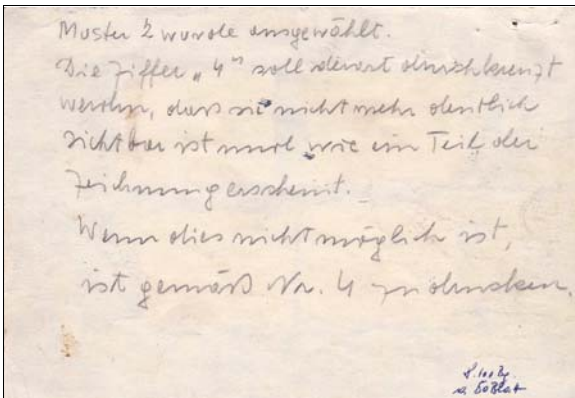 Muster 2 wurde ausgewählt.
Die Ziffer „4" soll derart durchkreuzt
werden, dass sie nicht mehr deutlich
sichtbar ist und wie ein Teil der
Zeichnung erscheint.
Wenn dies nicht möglich ist,
ist gemäß Nr. 4 zu drucken.